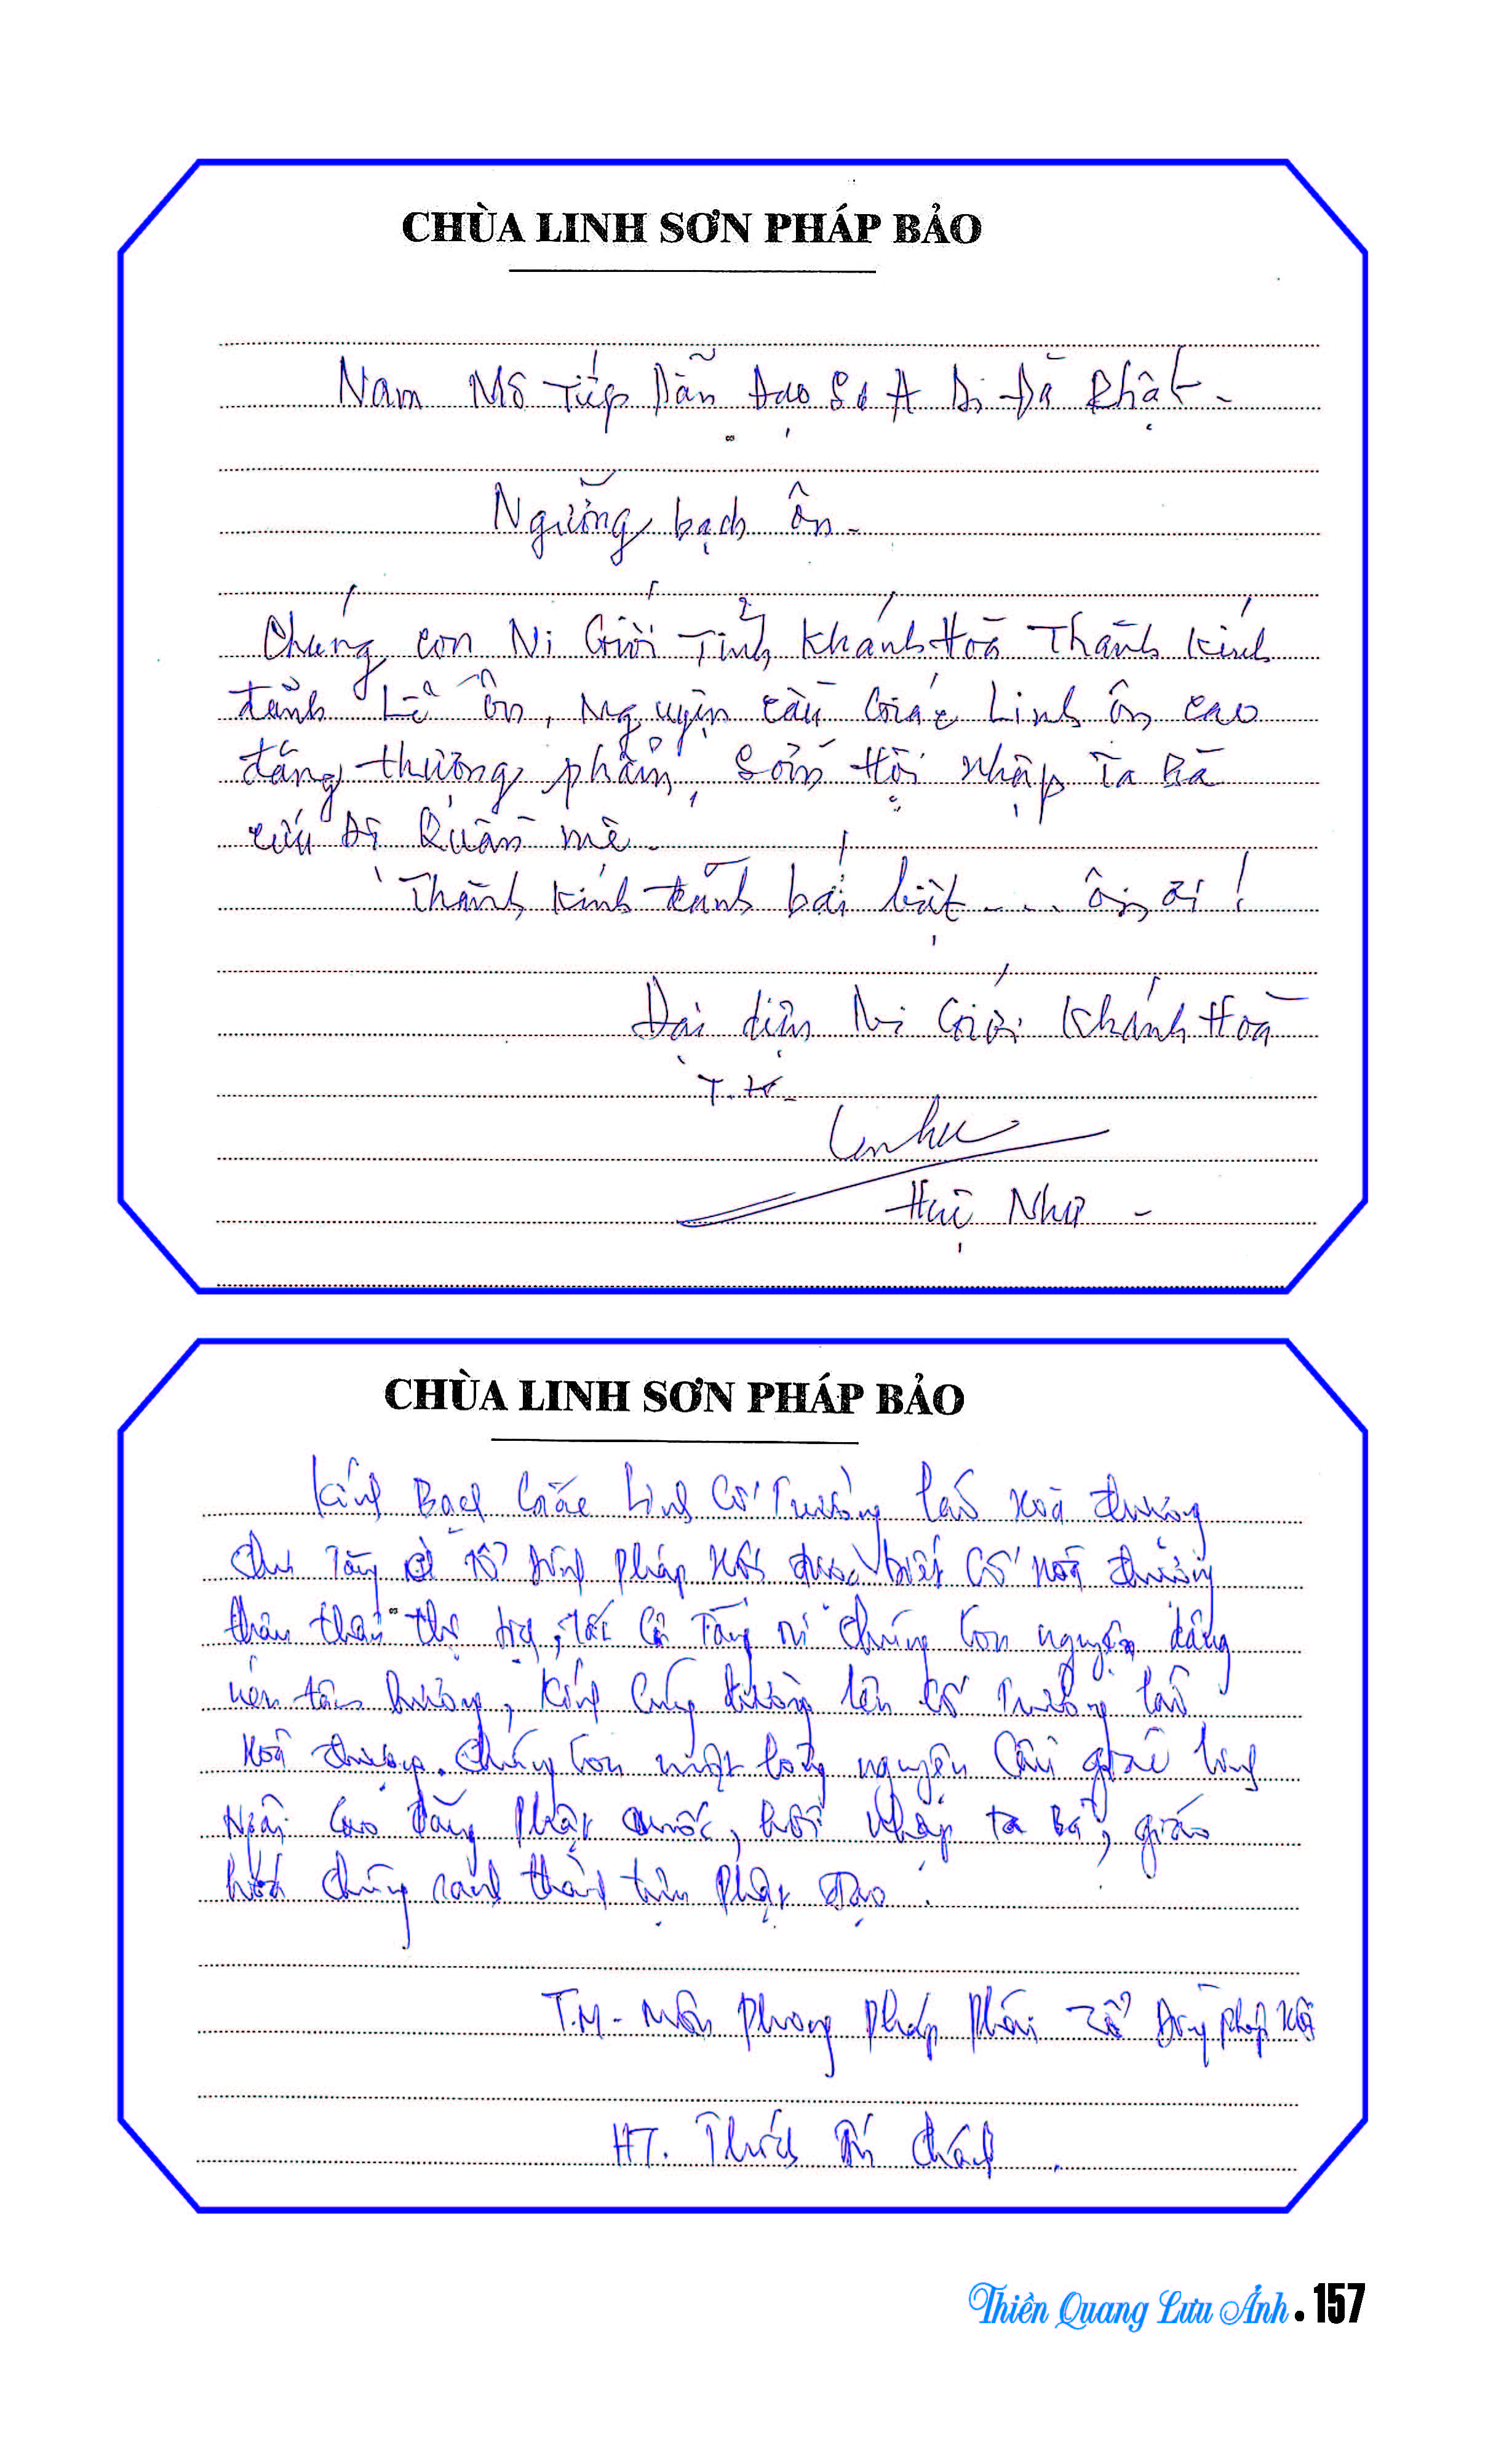 CHÙA LINH SƠN PHÁP BẢO
Nam Mô Tiếp Dẫn Đạo Sư A Di Đà Phật -
Ngưỡng bạch Ôn -
Chúng con Ni Giới Tỉnh Khánh Hoà Thành kính
đảnh Lễ Ôn, Nguyện cầu Giác Linh ôn cao
đăng thượng phẩm, Sớm Hội nhập Ta Bà
cứu độ Quần mê -
Thành kính đảnh bái biệt - - - ôn ơi !
Đại diện Ni Giới Khánh Hoà
T.K -
Huệ Như -
CHÙA LINH SƠN PHÁP BẢO
Kính Bạch Giác Linh Cố Trưởng lão Hoà thượng
Chư Tăng Tổ Đình Pháp Hội được biết Cố Hoà thượng
thâu thần thị tịch, tất Cả Tăng ni chúng con nguyện dâng
nén tâm hương, Kính Cúng dường lên Cố Trưởng lão
Hoà thượng. Chúng con một lòng nguyện Cầu giác linh
Ngài Cao đăng Phật quốc, hồi nhập ta Bà, giáo
hoá chúng sanh thành tựu Phật đạo.
T.M - Môn Phong Pháp Phái Tổ Đình Pháp Hội
HT. Thích Trí
Thiền Quang Lưu Ảnh • 157